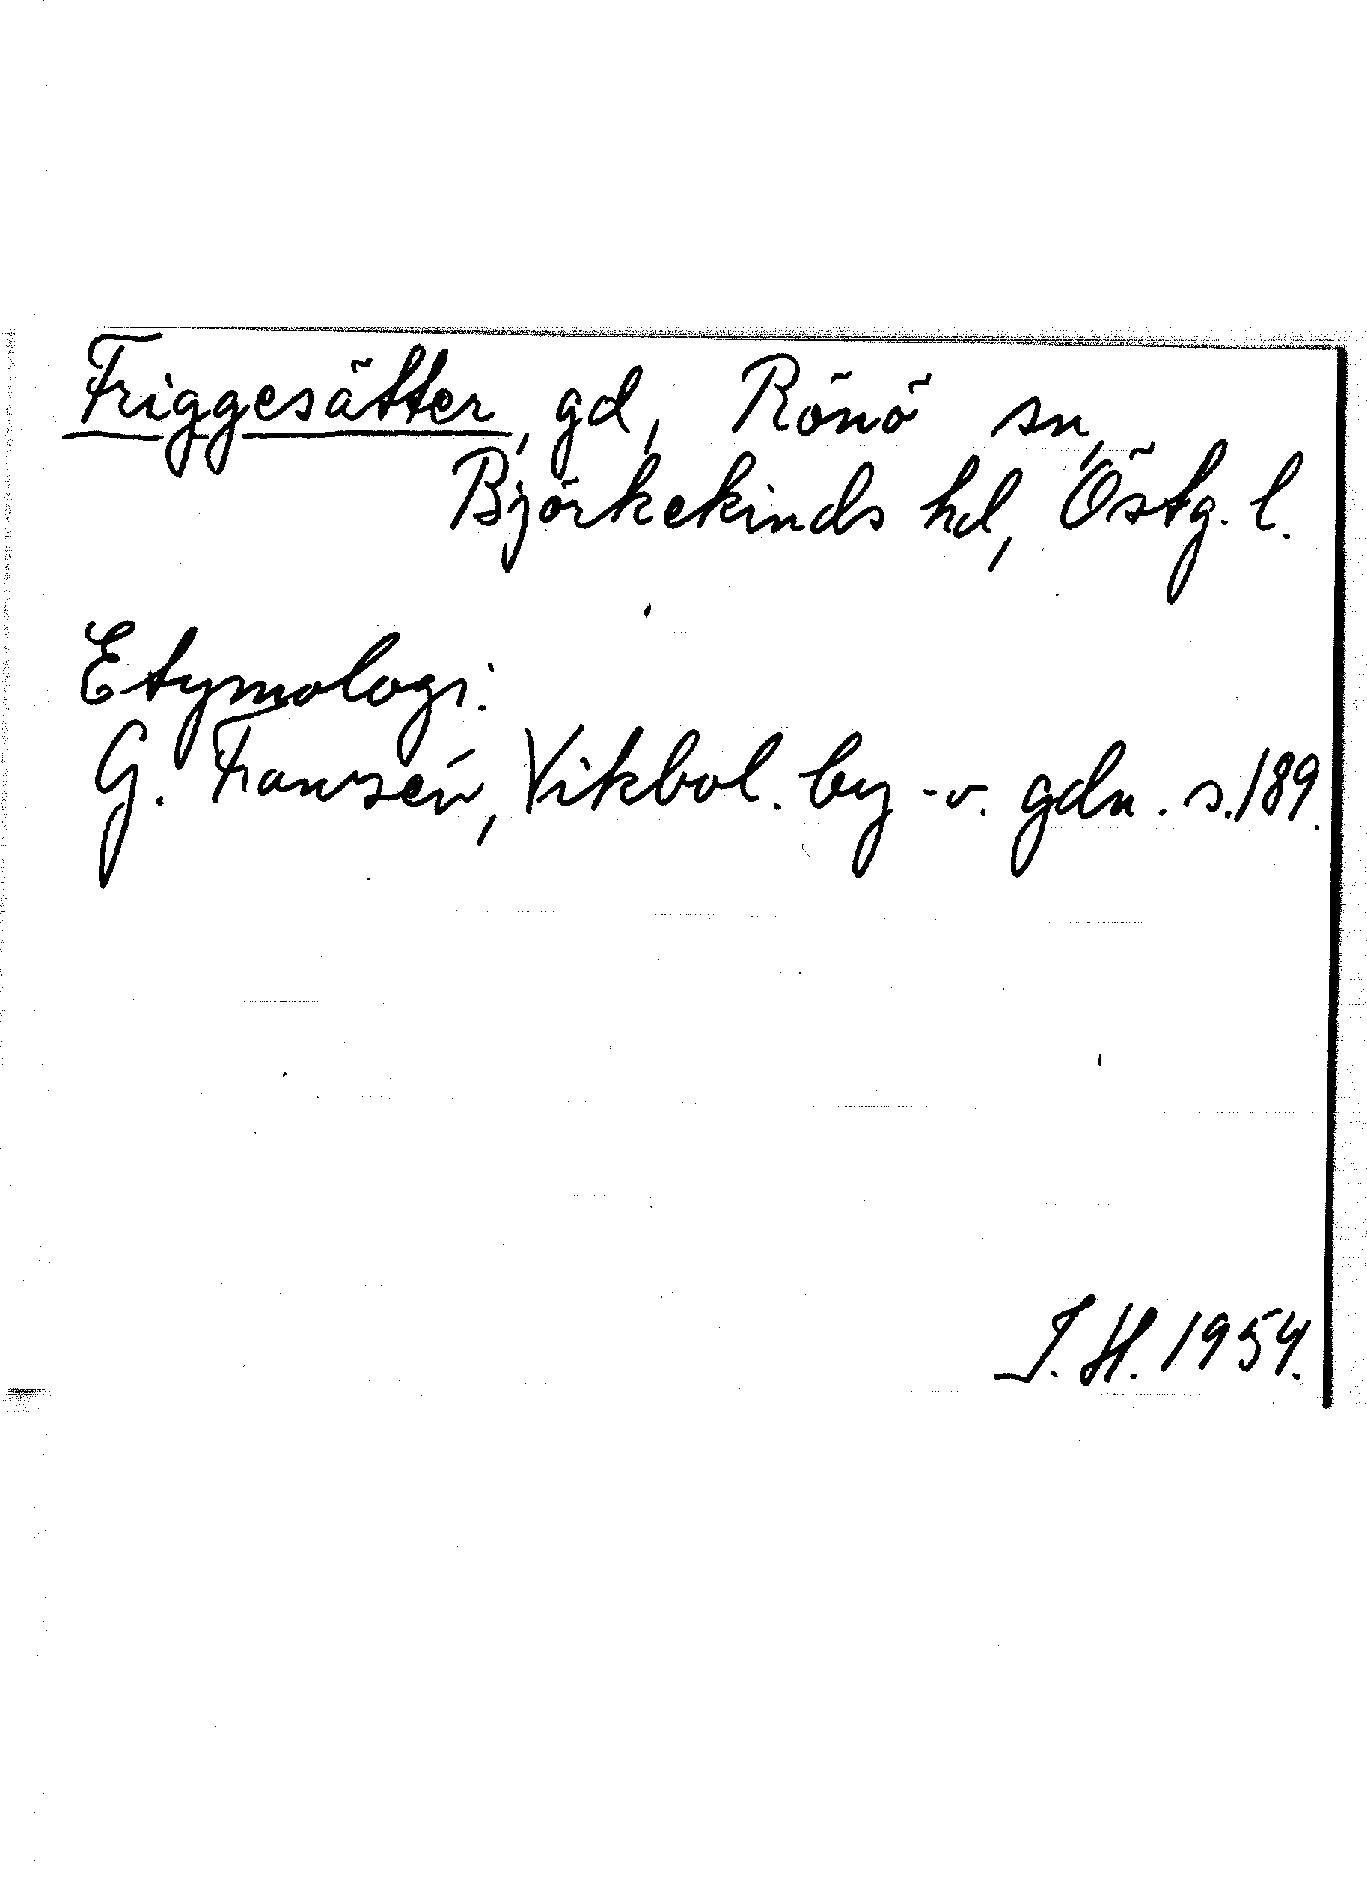 Friggesätter, gd, Rönö sn,
Björkekinds hd, Östg. l.
Etymologi:
G. Franzén, Vikbol. by- o. gdn. s. 189.
I. H. 1954.